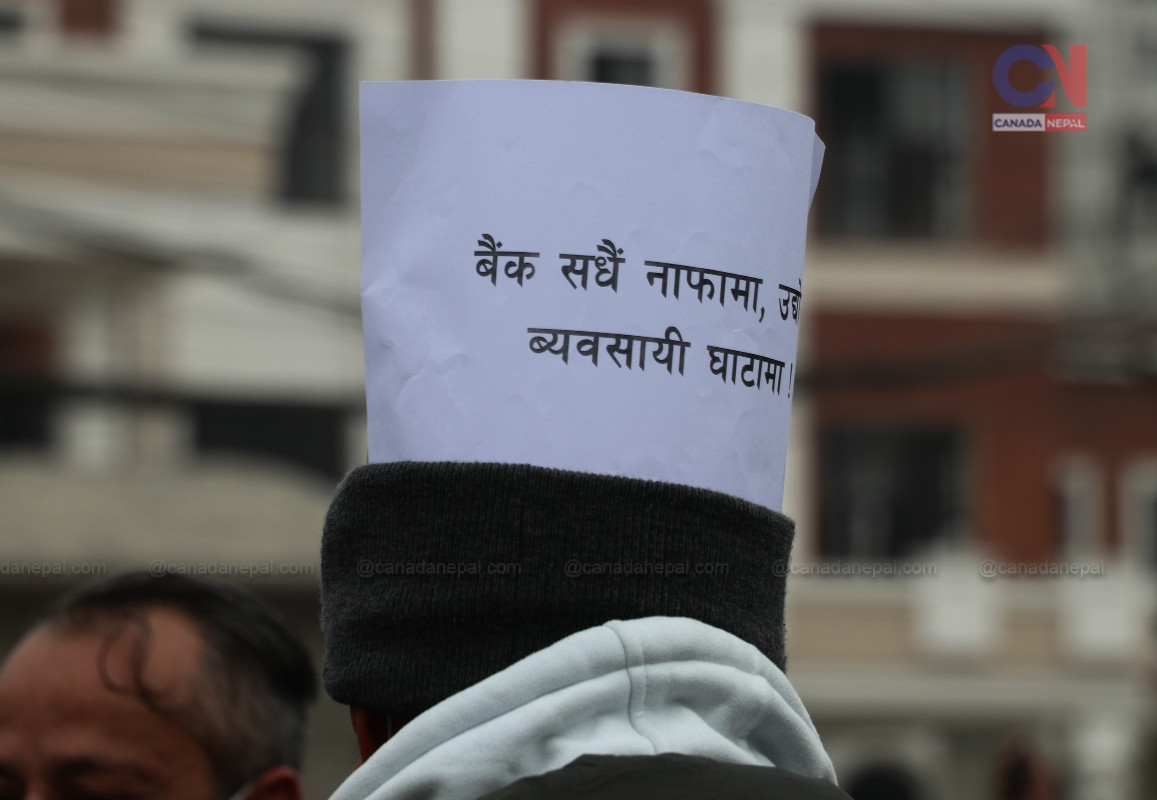 CN
CANADA NEPAL
बैंक सधैं नाफामा,
ब्यवसायी घाटामा !
@canadanepal.com @canadanepal.com @canadanepal.com @canadanepal.com @canadanepal.com